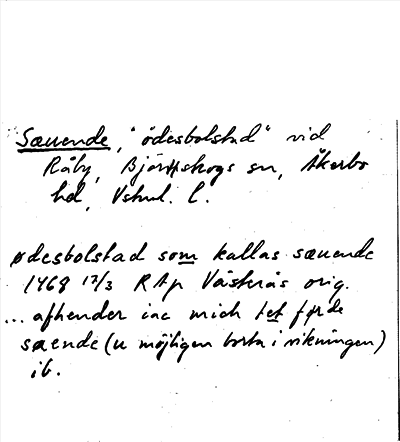 Sæuende, "ödesbolstad" vid
Råby, Björskogs sn, Åkerbo
hd, Vstml. l.
ødesbolstad som kallas sæuende
1468 12/3 RAp Västerås orig.
... afhender iac mich tet førde
sæende (u möjligen borta i vikningen)
ib.